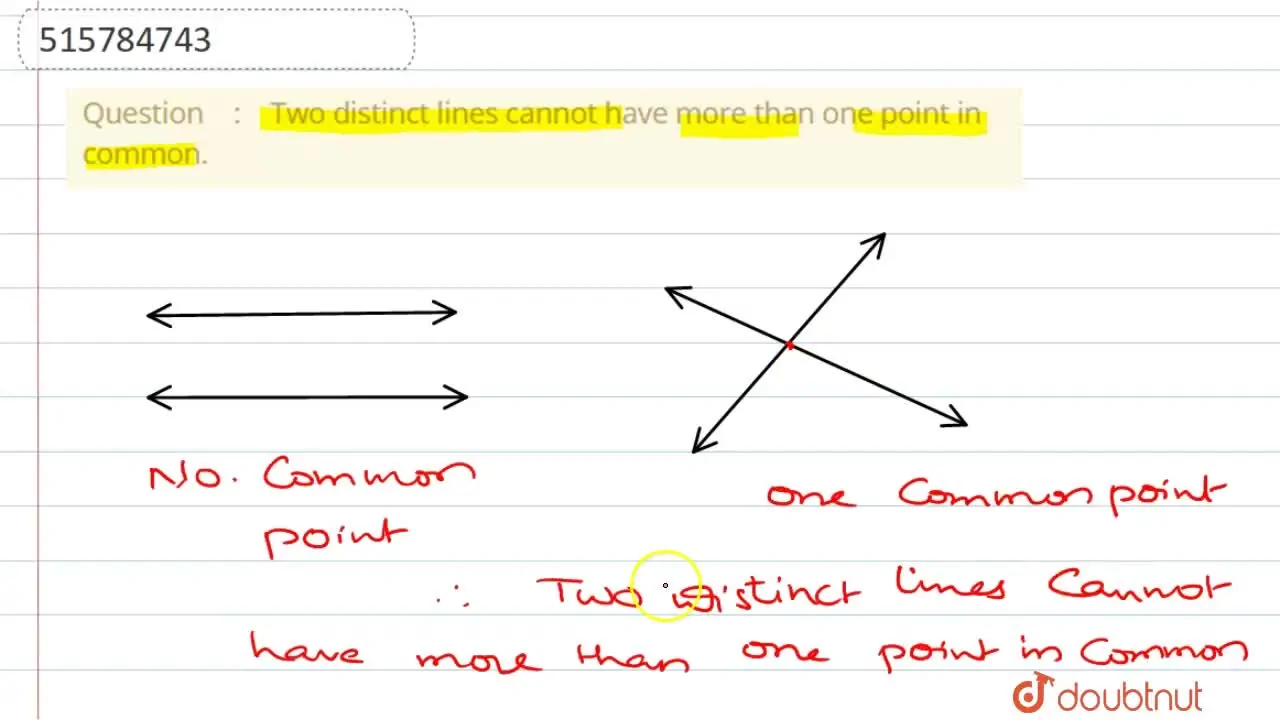 515784743
Question : Two distinct lines cannot have more than one point in
common.
No. Common
point
one Common point
∴ Two distinct lines Cannot
have more than one point in Common
doubtnut